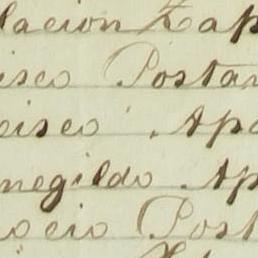 lacion Zap
isco Postar
cisco Apo
negildo Ap
nocio Post